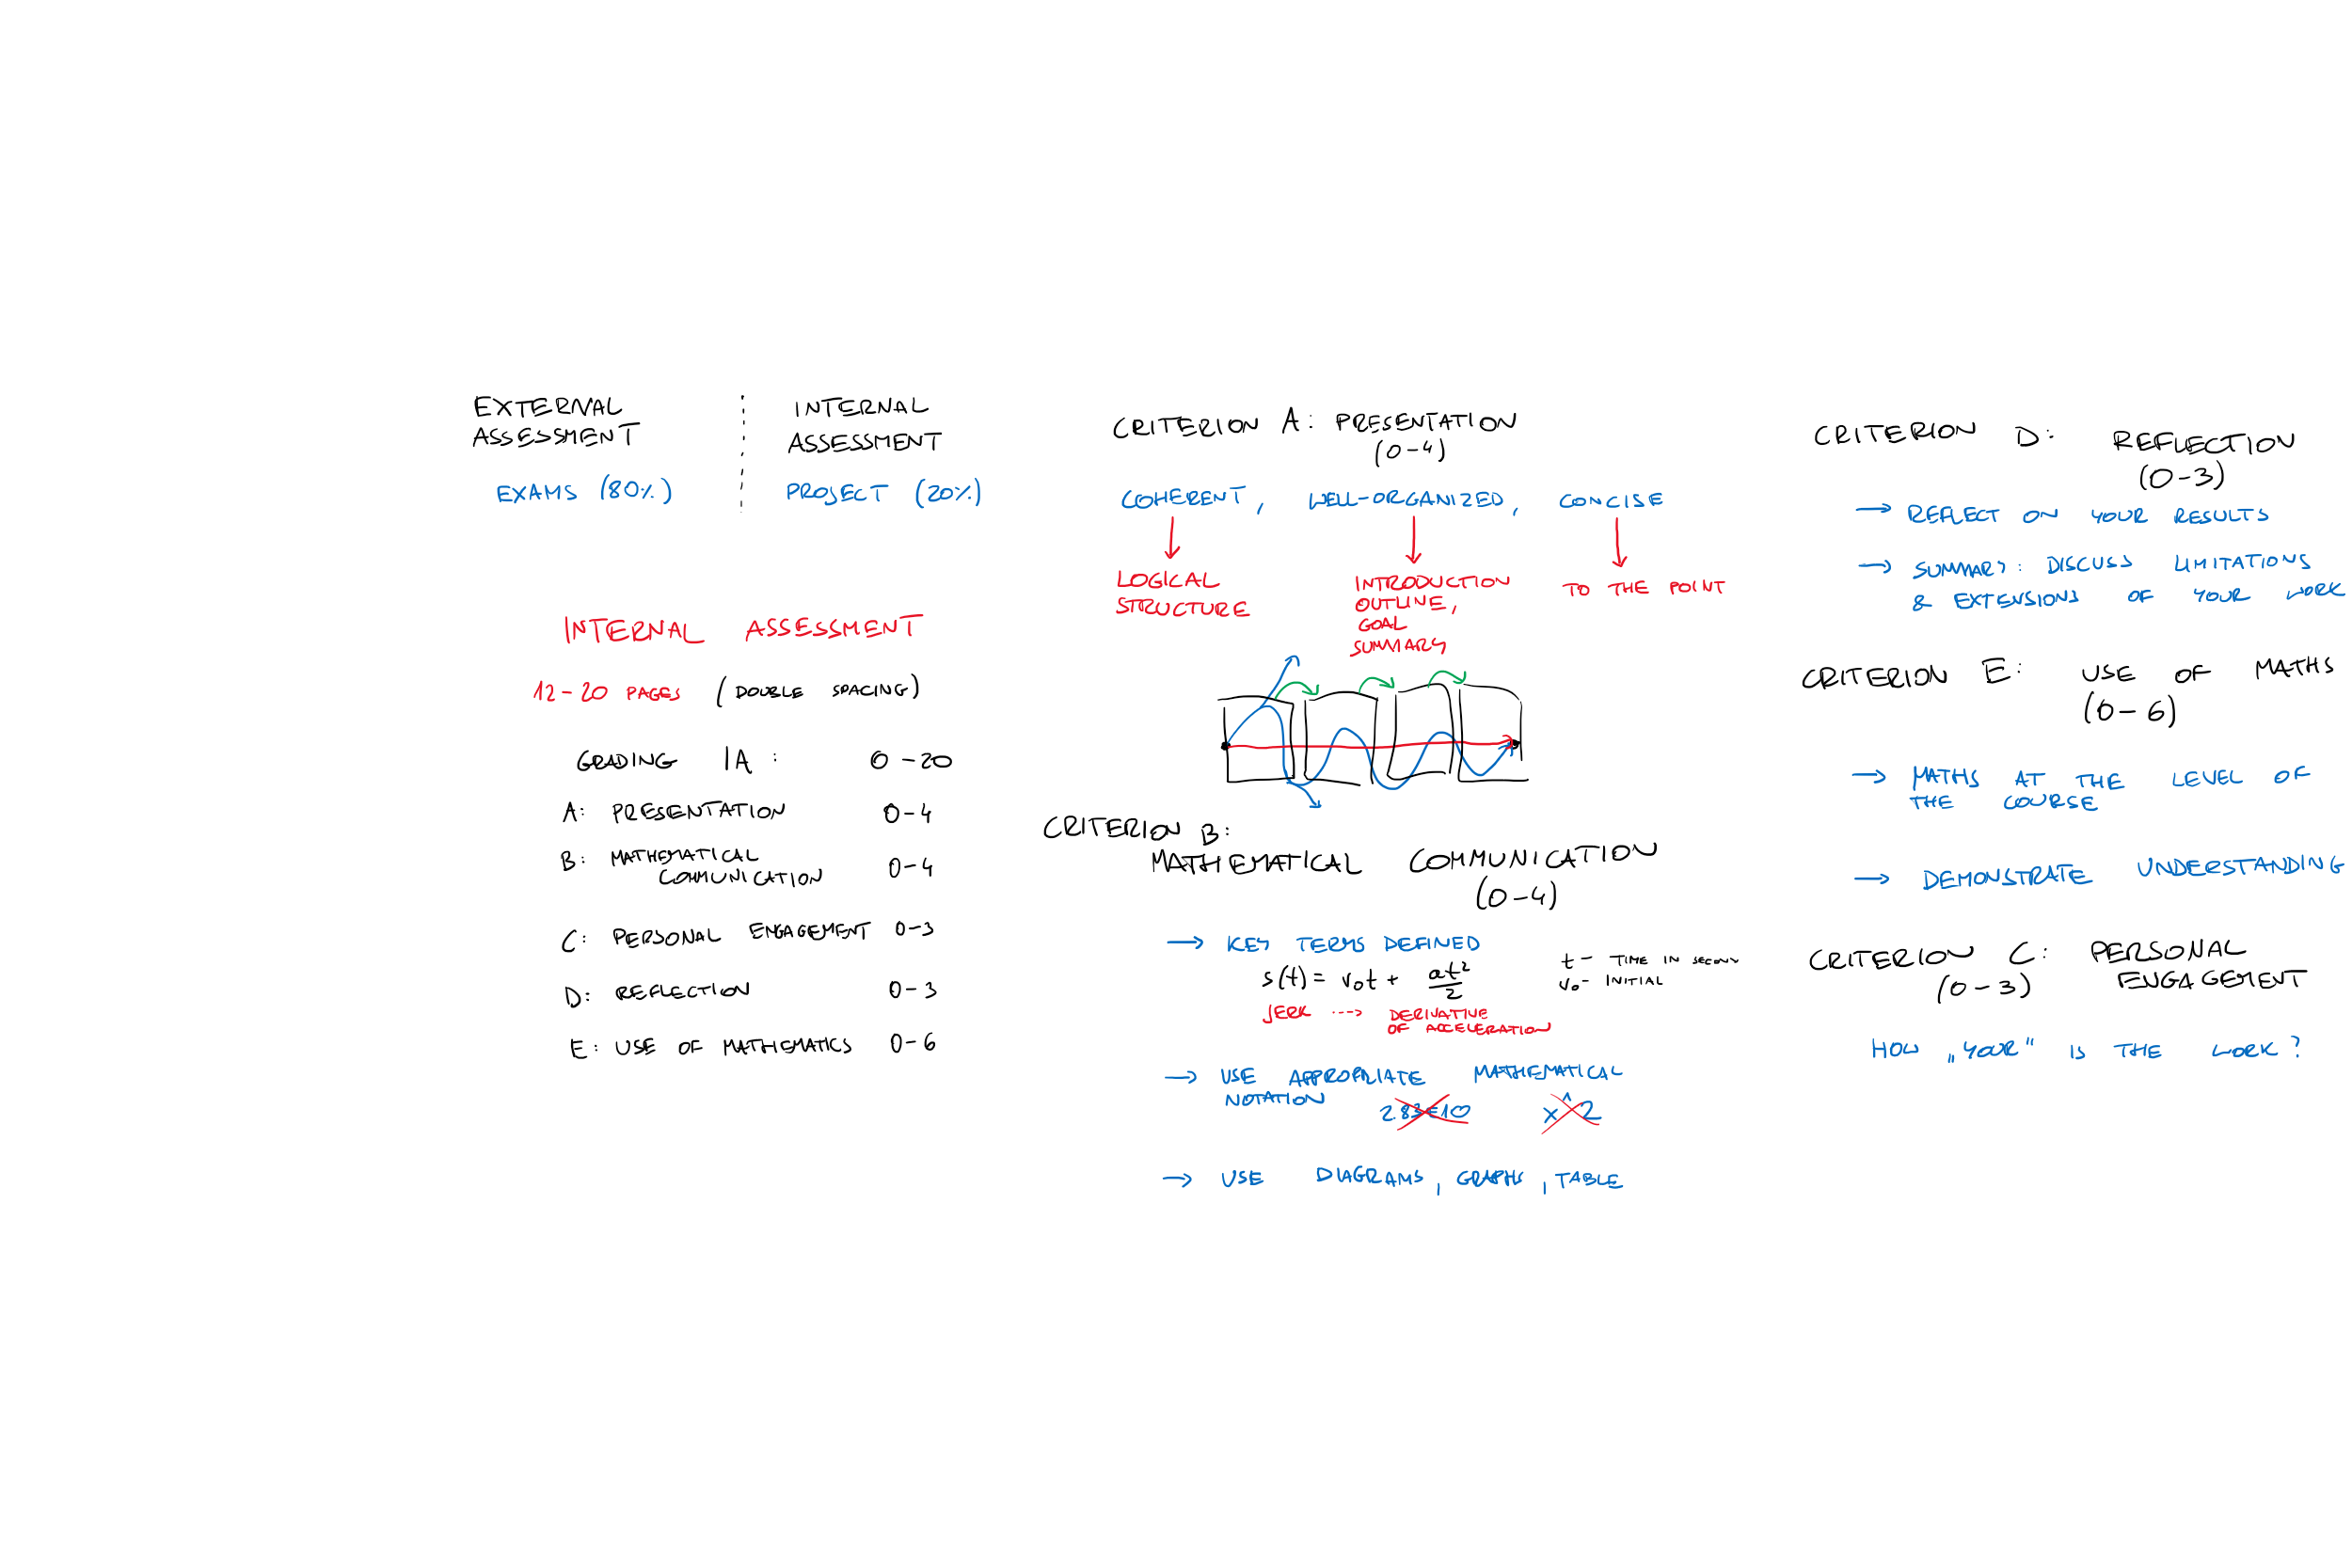 EXTERNAL
ASSESSMENT
EXAMS (80%)
INTERNAL
ASSESSMENT
PROJECT (20%)
INTERNAL ASSESSMENT
12-20 PAGES (DOUBLE SPACING)
GRADING IA: 0-20
A: PRESENTATION 0-4
B: MATHEMATICAL
COMMUNICATION 0-4
C: PERSONAL ENGAGEMENT 0-3
D: REFLECTION 0-3
E: USE OF MATHEMATICS 0-6
CRITERION A: PRESENTATION
(0-4)
COHERENT, WELL-ORGANIZED, CONCISE
LOGICAL
STRUCTURE
INTRODUCTION
OUTLINE,
GOAL
SUMMARY
TO THE POINT
CRITERION B:
MATHEMATICAL COMMUNICATION
(0-4)
→ KEY TERMS DEFINED
s(t) = v₀t + at²/2
t - TIME IN SECONDS
v₀ - INITIAL
JERK ---> DERIVATIVE
OF ACCELERATION
→ USE APPROPRIATE MATHEMATICAL
NOTATION
2.83E10 x^2
→ USE DIAGRAMS, GRAPHS, TABLE
CRITERION D: REFLECTION
(0-3)
→ REFLECT ON YOUR RESULTS
→ SUMMARY: DISCUSS LIMITATIONS
& EXTENSIONS OF YOUR WORK
CRITERION E: USE OF MATHS
(0-6)
→ MATHS AT THE LEVEL OF
THE COURSE
→ DEMONSTRATE UNDERSTANDING
CRITERION C: PERSONAL
(0-3) ENGAGEMENT
HOW „YOUR" IS THE WORK?